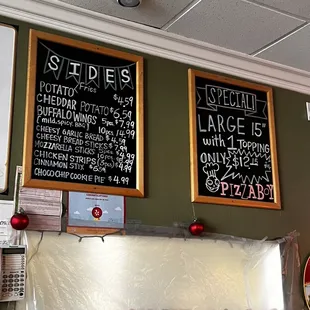 SIDES
POTATO Fries $4.59
CHEDDAR POTATO $5.59
BUFFALO WINGS 5pc 7.99
(mild, spicy, BBQ) 10pc 14.99
CHEESY GARLIC BREAD
CHEESY BREAD STICKS
MOZZARELLA STICKS
CHICKEN STRIPS
CINNAMON STIX
CHOCO CHIP COOKIE 4.99
SPECIAL
LARGE 15"
with 1 TOPPING
ONLY
PIZZABOY